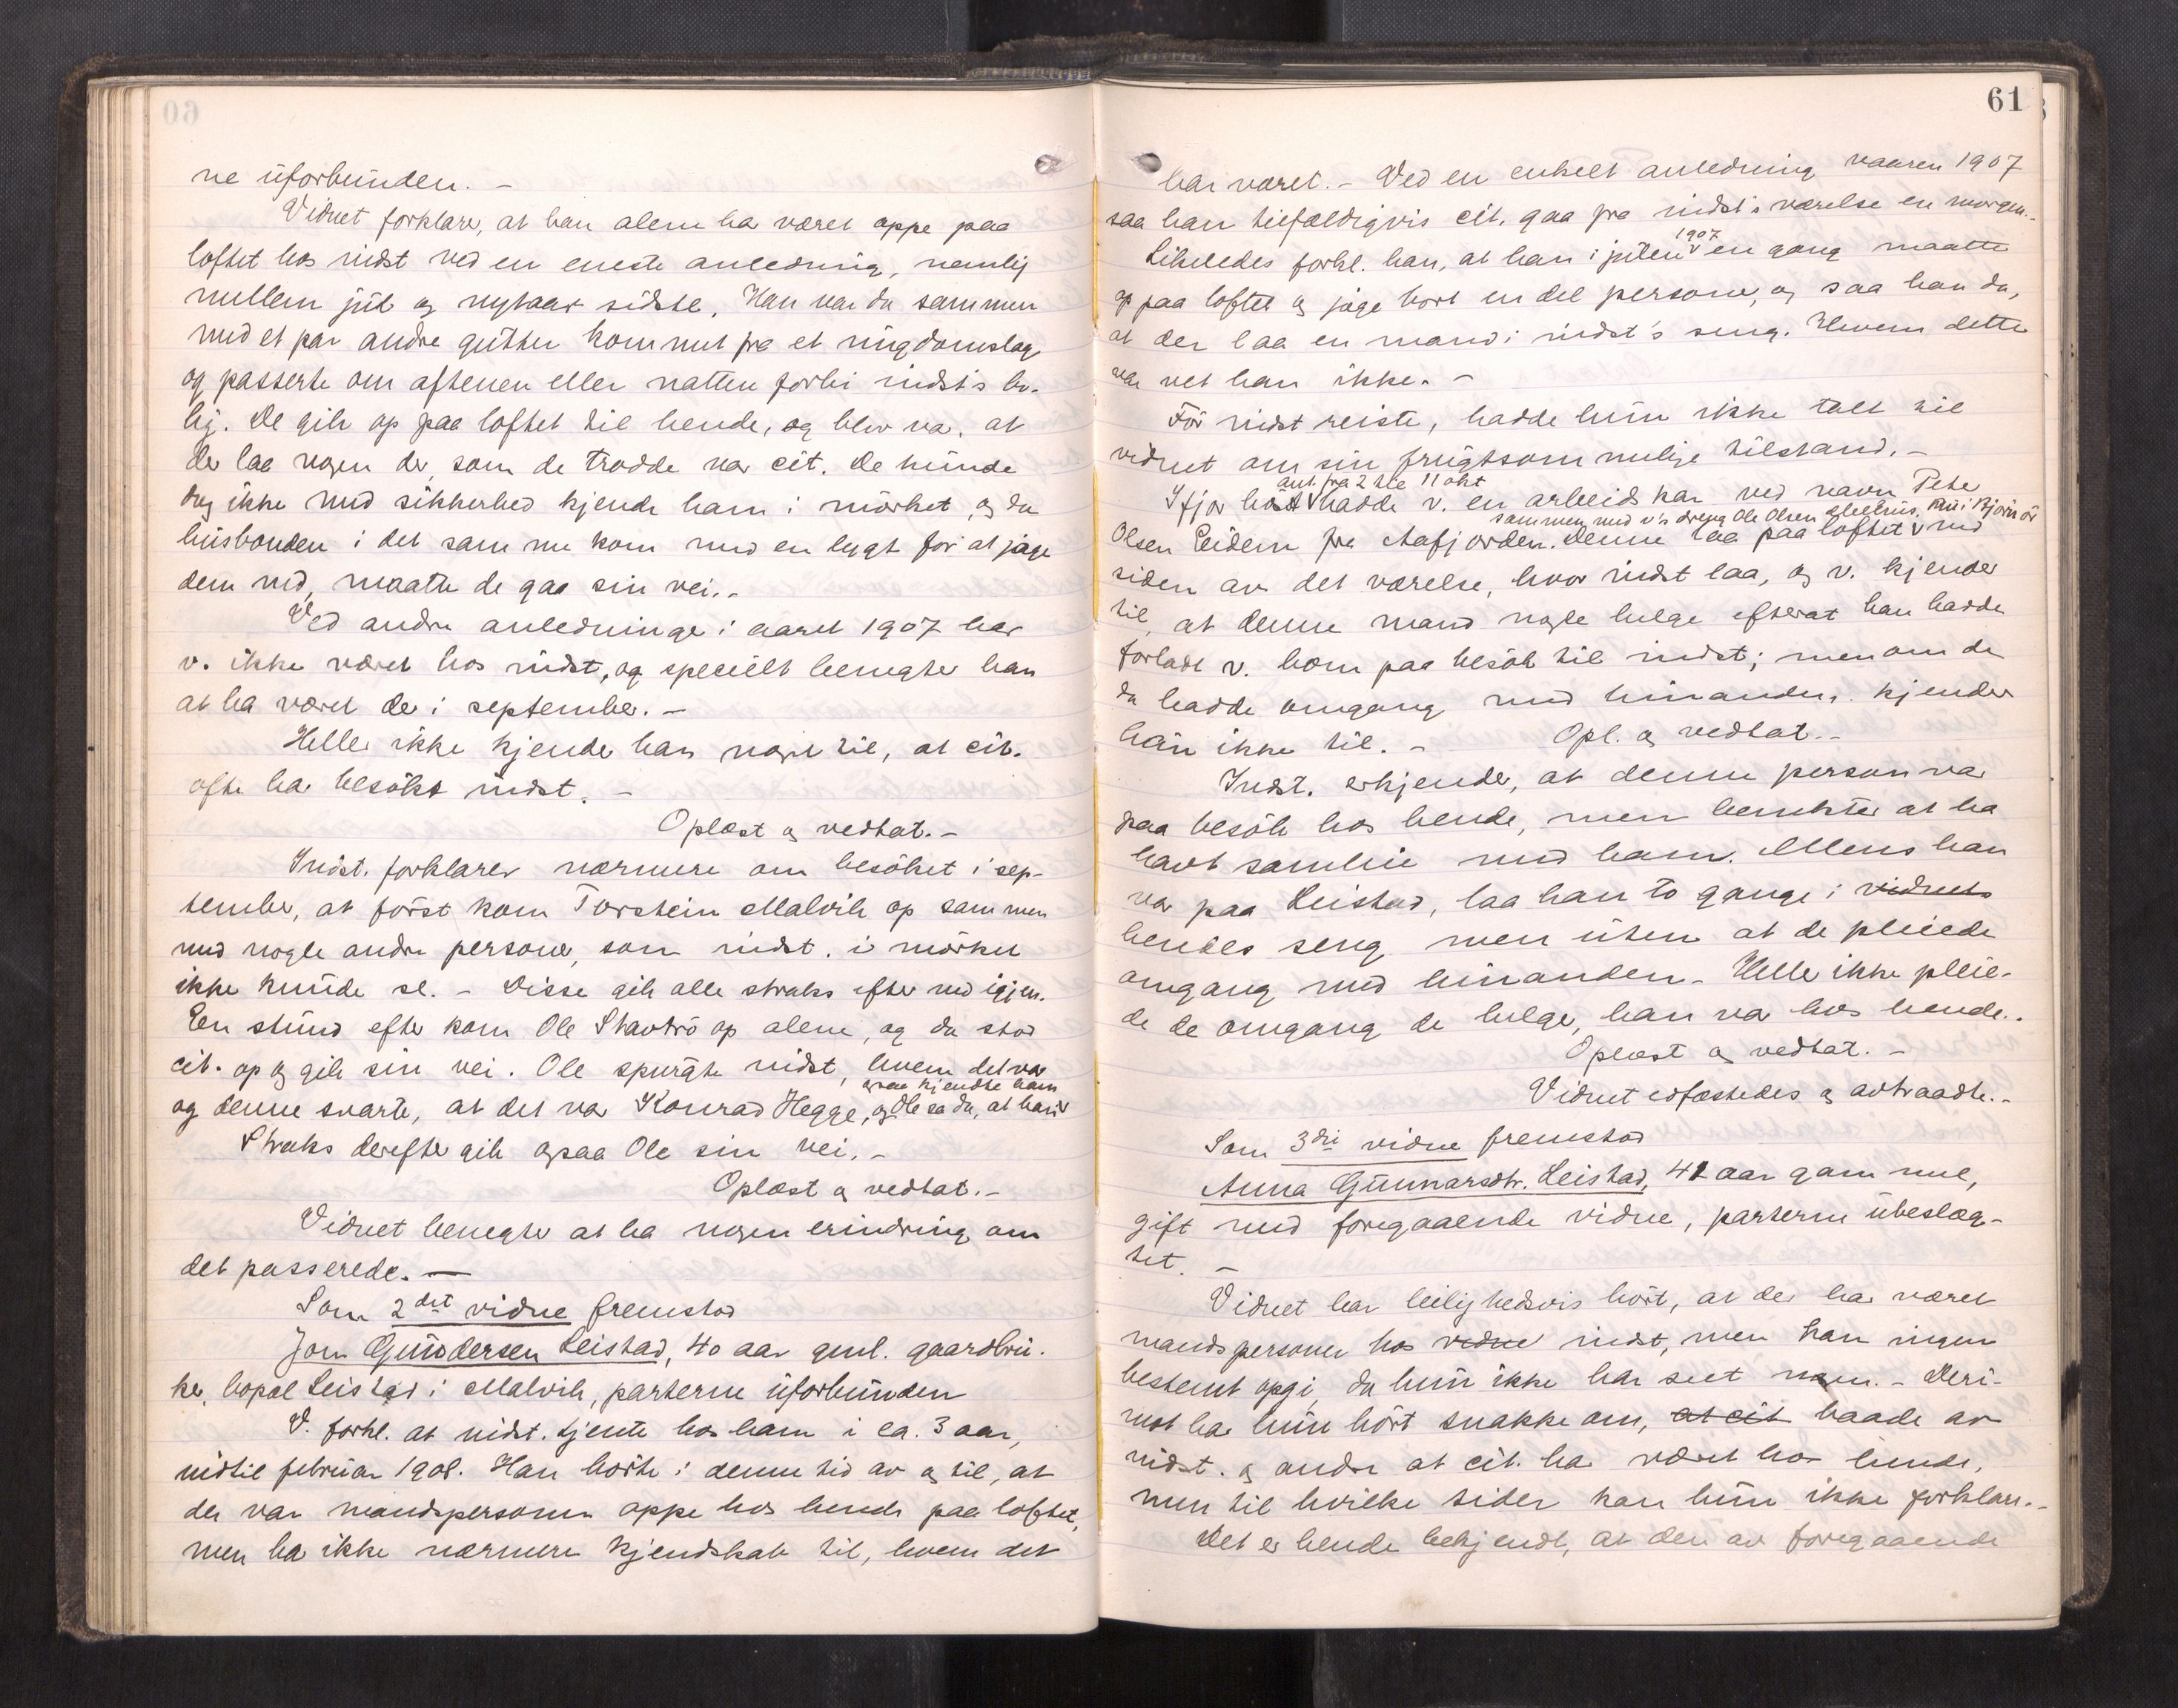 ne uforbunden. –
Vidnet forklarer, at han alene har været oppe paa
loftet hos indst ved en eneste anledning, nemlig
mellem jul og nytaar sidste. Han var da sammen
med et par andre gutter kommet fra et ungdomslag
og passerte om aftenen eller natten forbi indst's bo-
lig. De gik op paa loftet til hende, og blev var, at
der laa nogen der, som de trodde var cit. De kunde
dog ikke med sikkerhed kjende ham i mörket, og da
husbonden i det samme kom med en lygt for at jage
dem ned, maatte de gaa sin vei. –
Ved andre anledninger i aaret 1907 har
v. ikke været hos indst, og specielt benegter han
at ha været der i september. –
Heller ikke kjender han noget til, at cit.
ofte har besökt indst. –
Oplæst og vedtat. –
Indst. forklarer nærmere om besöket i sep-
tember, at först kom Torstein Malvik op sammen
med nogle andre personer, som indst. i mörket
ikke kunde se. – Disse gik alle straks efter ned igjen.
En stund efter kom Ole Stavdrö op alene, og da stod
cit. op og gik sin vei. Ole spurgte indst, hvem det var
og denne svarte, at det var Konrad Hegge, og Ole sa da, at han v
ogsaa kjendte ham
Straks derefter gik ogsaa Ole sin vei. –
Oplæst og vedtat. –
Vidnet benegter at ha nogen erindring om
det passerede. —
Som 2det vidne fremstod
Jon Gundersen Leistad, 40 aar gml. gaardbru-
ker, bopæl Leistad i Malvik, parterne uforbunden
V. forkl. at indst. tjente hos ham i ca. 3 aar,
indtil februar 1908. Han hörte i denne tid av og til, at
der var mandspersoner oppe hos hende paa loftet,
men har ikke nærmere kjendskab til, hvem det
61
har været. – Ved en enkelt anledning vaaren 1907
saa han tilfældigvis cit. gaa fra indst's værelse en morgen. –
1907
Likeledes forkl. han, at han i julen v en gang maatte
op paa loftet og jage bort en del personer, og saa han da,
at der laa en mand i indst's seng. Hvem dette
var vet han ikke. –
För indst reiste, hadde hun ikke talt til
vidnet om sin frugtsommelige tilstand. –
ant. fra 2 til 11 okt
Ifjor höst v hadde v. en arbeidskar ved navn Peter
sammen med v's dreng Ole Olsen
Olsen Eidem fra Aafjorden. Denne laa paa loftet v ved
siden av det værelse, hvor indst laa, og v. kjender
til, at denne mand nogle helge efterat han hadde
forladt v. kom paa besök til indst; men om de
da hadde omgang med hinanden, kjender
han ikke til. – Opl. og vedtat. –
Indst. erkjender, at denne person var
paa besök hos hende, men benekter at ha
havt samleie med ham. Mens han
var paa Leistad, laa han to gange i vidnets
hendes seng men uten at de pleiede
omgang med hinanden. – Heller ikke pleie-
de de omgang de helge, han var hos hende. –
Oplæst og vedtat. –
Vidnet edfæstedes og avtraadte. –
Som 3die vidne fremstod
Anna Gunnarsdtr. Leistad, 41 aar gammel,
gift med foregaaende vidne, parterne ubeslæg-
tet. –
Vidnet har leilighedsvis hört, at der har været
mandspersoner hos vidne indst, men kan ingen
bestemt opgi, da hun ikke har seet nogen. – Deri-
mot har hun hört snakke om, at cit baade av
indst. og andre at cit. har været hos hende,
men til hvilke tider kan hun ikke forklare. –
Det er hende bekjendt, at den av foregaaende